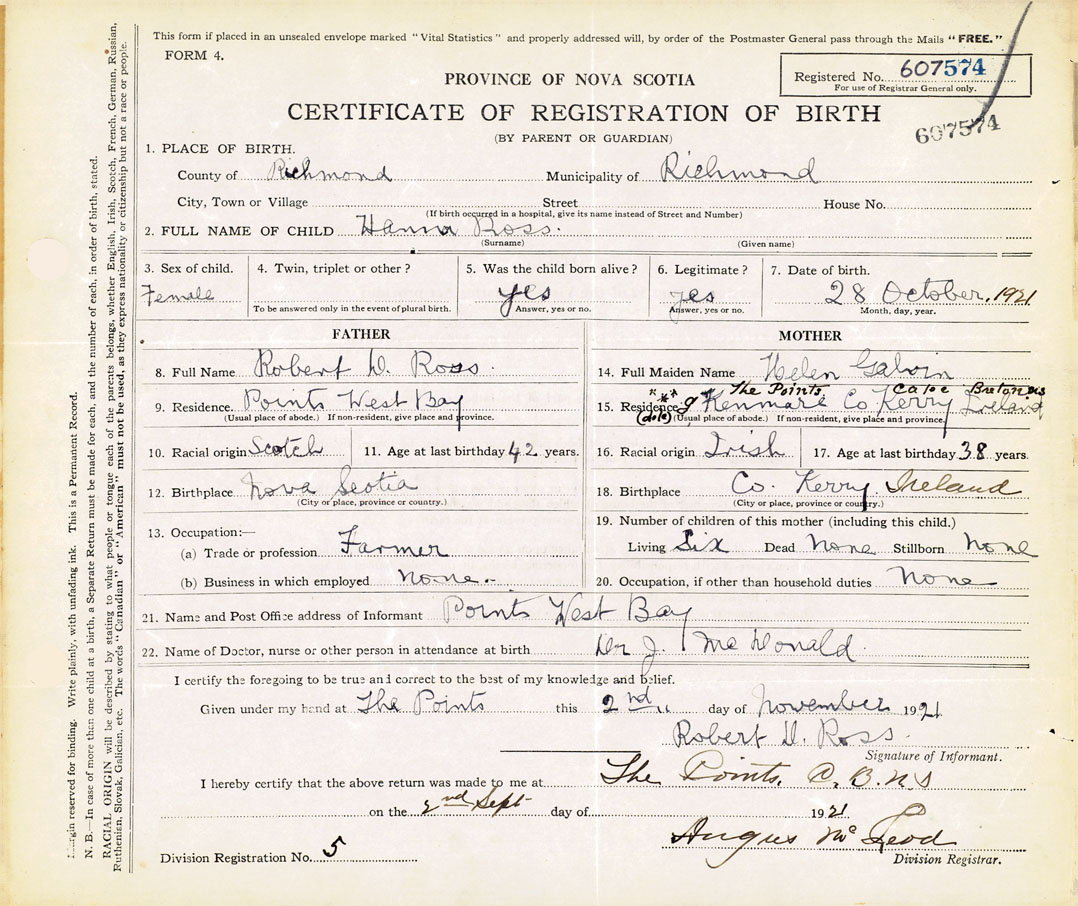 This form if placed in an unsealed envelope marked "Vital Statistics" and properly addressed will, by order of the Postmaster General pass through the Mails "FREE."
FORM 4.
Registered No. 607574
For use of Registrar General only.
PROVINCE OF NOVA SCOTIA
CERTIFICATE OF REGISTRATION OF BIRTH
607574
(BY PARENT OR GUARDIAN)
1. PLACE OF BIRTH.
County of Richmond Municipality of Richmond
City, Town or Village Street House No.
(If birth occurred in a hospital, give its name instead of Street and Number)
2. FULL NAME OF CHILD Hanna Ross.
(Surname) (Given name)
3. Sex of child. 4. Twin, triplet or other? 5. Was the child born alive? 6. Legitimate? 7. Date of birth.
Female yes yes 28 October, 1921
To be answered only in the event of plural birth. Answer, yes or no. Answer, yes or no. Month, day, year.
FATHER
8. Full Name Robert D. Ross.
9. Residence. Points West Bay
(Usual place of abode.) If non-resident, give place and province.
10. Racial origin Scotch 11. Age at last birthday 42 years.
12. Birthplace Nova Scotia
(City or place, province or country.)
13. Occupation:—
(a) Trade or profession Farmer
(b) Business in which employed none.-
MOTHER
14. Full Maiden Name Helen Galvin
The Points. Cape Breton NS
15. Residence Kenmare Co Kerry Ireland
(Usual place of abode.) If non-resident, give place and province.
16. Racial origin Irish 17. Age at last birthday 38 years.
18. Birthplace Co. Kerry. Ireland
(City or place, province or country.)
19. Number of children of this mother (including this child.)
Living Six Dead None Stillborn None
20. Occupation, if other than household duties None
21. Name and Post Office address of Informant Points West Bay
22. Name of Doctor, nurse or other person in attendance at birth Dr J. McDonald.
I certify the foregoing to be true and correct to the best of my knowledge and belief.
Given under my hand at The Points this 2nd day of November 1921
Robert D. Ross.
Signature of Informant.
I hereby certify that the above return was made to me at The Points, C.B.N.S
on the 2nd Sept day of 1921
Angus McLeod
Division Registration No. 5 Division Registrar.
Margin reserved for binding. Write plainly, with unfading ink. This is a Permanent Record.
N. B.—In case of more than one child at a birth, a Separate Return must be made for each, and the number of each, in order of birth, stated.
RACIAL ORIGIN will be described by stating to what people or tongue each of the parents belongs, whether English, Irish, Scotch, French, German, Russian,
Ruthenian, Slovak, Galician, etc. The words "Canadian" or "American" must not be used, as they express nationality or citizenship but not a race or people.